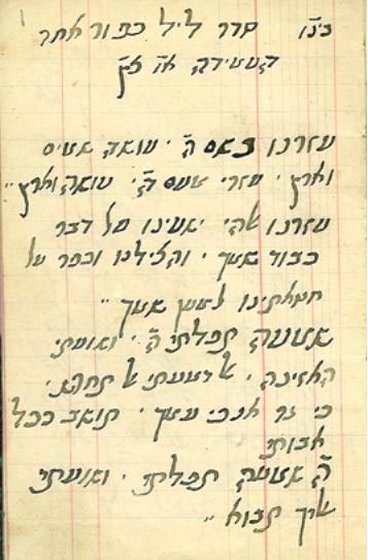 סדר ליל כפור אחר
העמידה
עזרנו בשם ה׳ · עושה שמים
וארץ · עזרי מעם ה׳ · עושה וארץ ״
עזרנו אלהי ישעינו על דבר
כבוד שמך · והצילנו וכפר על
חטאתינו למען שמך ״
שמעה תפלתי ה׳ · ושועתי
האזינה · אל דמעתי אל תחרש ·
כי גר אנכי עמך · תושב ככל
אבותי
ה׳ שמעה תפלתי · ושועתי
אליך תבוא ״